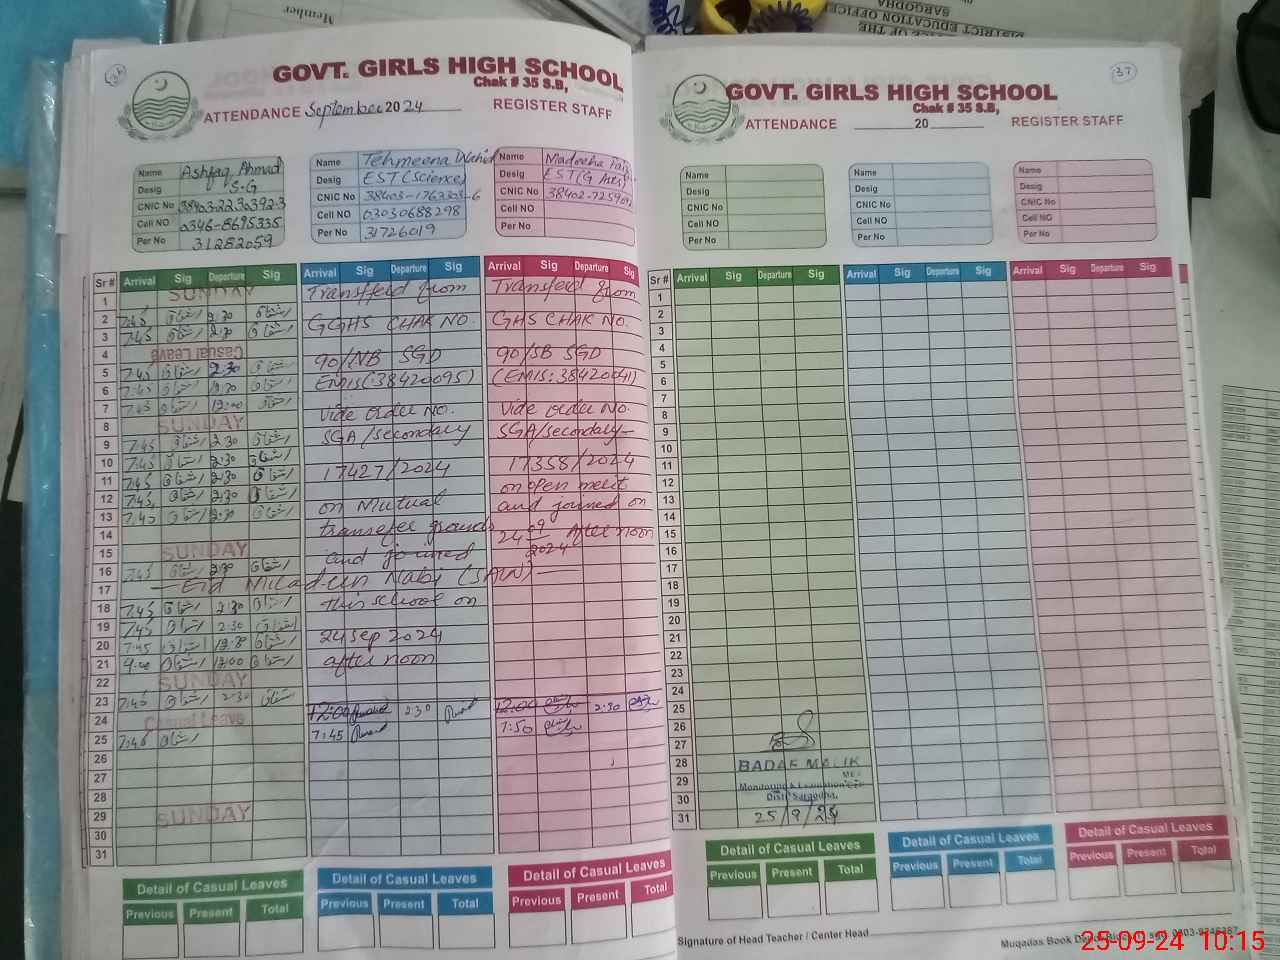 Member
DISTRICT EDUCATION OFFICE
SARGODHA
OFFICE OF THE
36
GOVT. GIRLS HIGH SCHOOL
Chak # 35 S.B,
ATTENDANCE September 2024 REGISTER STAFF
Name Ashfaq Ahmad
Desig S-G
CNIC No 38403-2230392-3
Cell NO 0346-8695335
Per No 31282059
Name Tehmeena Wahid
Desig EST (Science)
CNIC No 38403-1762303-6
Cell NO 03030688298
Per No 31726019
Name Madeeha
Desig EST (G Arts)
CNIC No 38402-725909
Cell NO
Per No
Sr # Arrival Sig Departure Sig Arrival Sig Departure Sig Arrival Sig Departure Sig
1 SUNDAY Transfferd from Transferd from
2 7:45 اشفاق 2:30 اشفاق
3 7:45 اشفاق 2:30 اشفاق GGHS CHAK NO. GHS CHAK NO.
4 Casual Leave 90/NB SGD 90/SB SGD
5 7:45 اشفاق 2:30 اشفاق
6 7:45 اشفاق اشفاق EMIS(:38420095) (EMIS:38420041)
7 7:45 اشفاق 12:00 اشفاق Vide order No. Vide order No.
8 SUNDAY
9 7:45 اشفاق 2:30 اشفاق SGA/secondary SGA/secondary
10 7:45 اشفاق 2:30 اشفاق
11 7:45 اشفاق 2:30 اشفاق 17427/2024 17358/2024
12 7:45 اشفاق 2:30 اشفاق on open merit
13 7:45 اشفاق 2:30 اشفاق on Mutual and joined on
14 transefer grounds 24 09/2024 After noon
15 SUNDAY and joined
16 7:45 اشفاق 2:30 اشفاق
17 Eid Milad-un Nabi (SAW)
18 7:45 اشفاق 2:30 اشفاق this school on
19 7:45 اشفاق 2:30 اشفاق
20 7:45 اشفاق 12:30 اشفاق 24 Sep 2024
21 9:00 اشفاق 12:00 اشفاق after noon
22 SUNDAY
23 7:45 اشفاق 2:30 اشفاق
24 Casual Leave 12:00 2:30 12:00 2:30
25 7:45 اشفاق 7:45 7:50
26
27
28
29 SUNDAY
30
31
Detail of Casual Leaves Detail of Casual Leaves Detail of Casual Leaves
Previous Present Total Previous Present Total Previous Present Total
37
GOVT. GIRLS HIGH SCHOOL
Chak # 35 S.B,
ATTENDANCE 20 REGISTER STAFF
Name
Desig
CNIC No
Cell NO
Per No
Name
Desig
CNIC No
Cell NO
Per No
Name
Desig
CNIC No
Cell NO
Per No
Sr # Arrival Sig Departure Sig Arrival Sig Departure Sig Arrival Sig Departure Sig
1
2
3
4
5
6
7
8
9
10
11
12
13
14
15
16
17
18
19
20
21
22
23
24
25
26
27
28 BADAR MALIK
29 Monitoring & Evaluation
30 Distt Sargodha.
31 25/9/24
Detail of Casual Leaves Detail of Casual Leaves Detail of Casual Leaves
Previous Present Total Previous Present Total Previous Present Total
Signature of Head Teacher / Center Head
Muqadas Book Depot
25-09-24 10:15